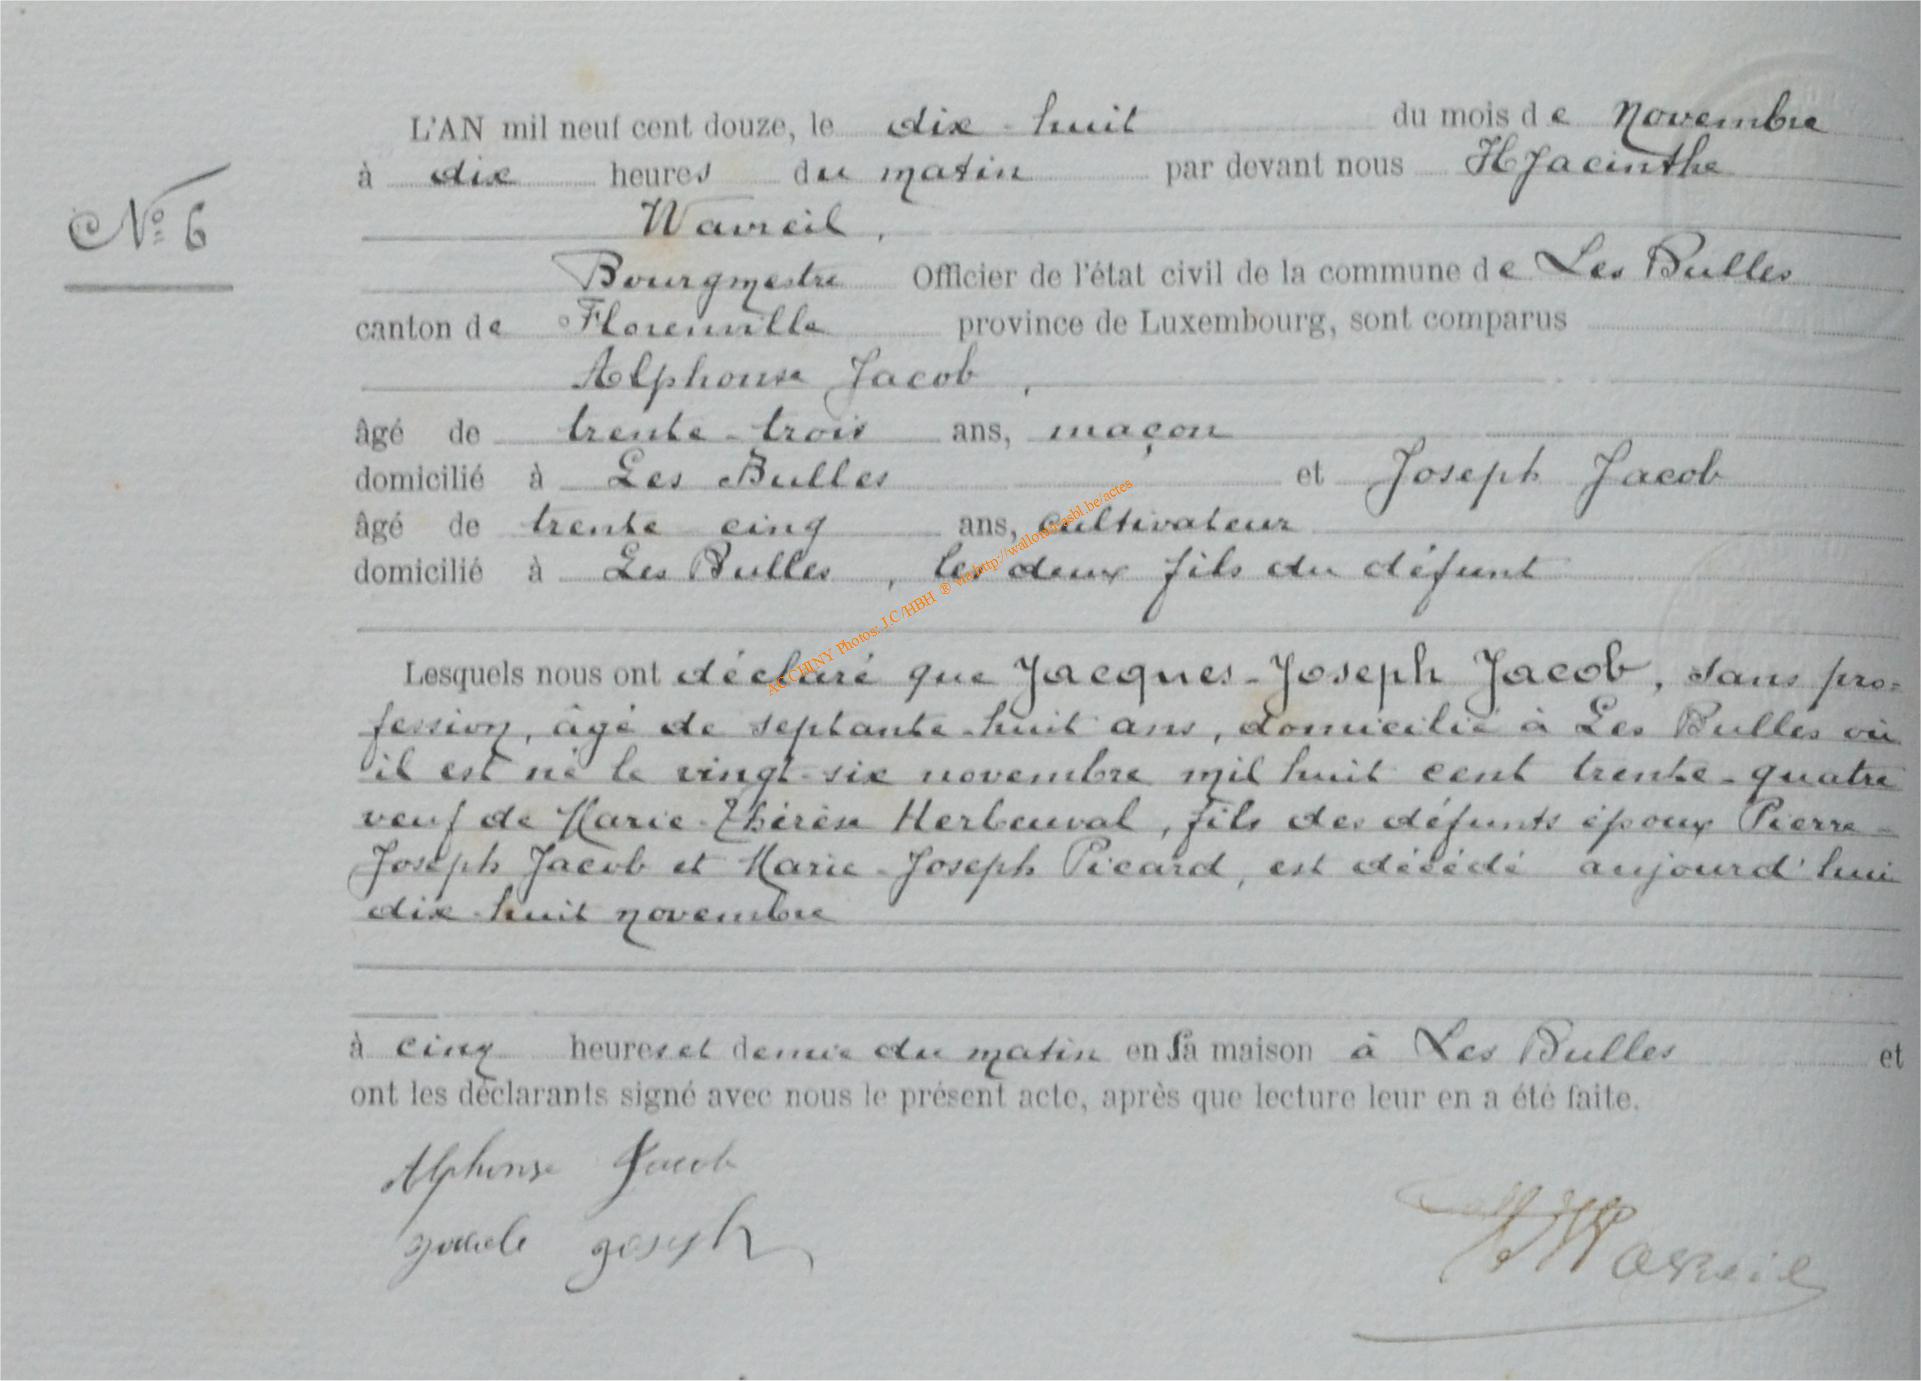 L'AN mil neuf cent douze, le dix-huit du mois de Novembre
à dix heures du matin par devant nous Hyacinthe
Wavreil,
N° 6
Bourgmestre Officier de l'état civil de la commune de Les Bulles
canton de Florenville province de Luxembourg, sont comparus
Alphonse Jacob,
âgé de trente-trois ans, maçon
domicilié à Les Bulles et Joseph Jacob
âgé de trente cinq ans, cultivateur
domicilié à Les Bulles, les deux fils du défunt
ACCHINY Photos: J.C/HBH ® via http://wallonia-asbl.be/actes
Lesquels nous ont déclaré que Jacques-Joseph Jacob, sans pro=
fession, âgé de septante-huit ans, domicilié à Les Bulles où
il est né le vingt-six novembre mil huit cent trente-quatre
veuf de Marie-Thérèse Herbeuval, fils des défunts époux Pierre-
Joseph Jacob et Marie-Joseph Picard, est décédé aujourd'hui
dix-huit novembre
à cinq heures et demie du matin en sa maison à Les Bulles et
ont les déclarants signé avec nous le présent acte, après que lecture leur en a été faite.
Alphonse Jacob
Jacob Joseph
H Wavreil